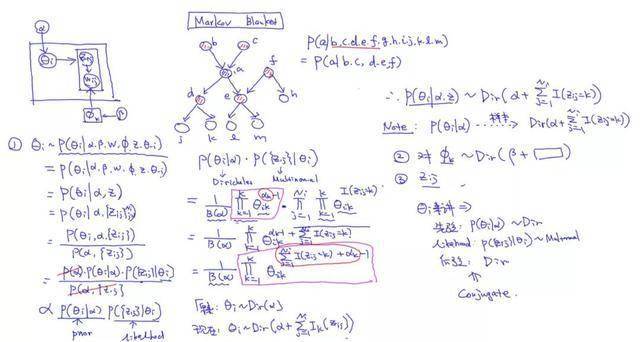 Markov Blanket
α
θi
zij
wij
φk
β
b
c
a
f
d
e
h
j
k
l
m
P(a|b,c,d,e,f,g,h,i,j,k,l,m)
= P(a|b,c,d,e,f)
① θi ~ P(θi|α,β,w,φ,z,θ-i)
= P(θi|α,β,w,φ,z,θ-i)
= P(θi|α,z)
= P(θi|α,{zij}
= P(θi,α,{zij})
P(α,{zij})
= P(α)·P(θi|α)·P({zij}|θi)
P(α,{zij})
∝ P(θi|α) P({zij}|θi)
prior
likelihood
P(θi|α) · P({zij}|θi)
Dirichlet
Multinomial
= 1/B(α) ∏_{k=1}^{K} θik^{αk-1} · ∏_{j=1}^{Ni} ∏_{k=1}^{K} θik^{I(zij=k)}
= 1/B(α) ∏_{k=1}^{K} θik^{αk-1+∑_{j=1}^{Ni} I(zij=k)}
= 1/B(α) ∏_{k=1}^{K} θik^{∑_{j=1}^{Ni} I(zij=k)+αk-1}
θi~Dir(α)
现在: θi~Dir(α+∑_{j=1}^{Ni} Ik(zij))
∴ P(θi|α,z) ~ Dir(α+∑_{j=1}^{Ni} I(zij=k))
Note: P(θi|α) ⇢ Dir(α+∑_{j=1}^{Ni} I(zij=k))
② 对 φk ~ Dir(β+□)
③ zij
θi 采样 ⇒
先验: P(θi|α) ~ Dir
likelihood: P({zij}|θi) ~ Multinomial
后验: Dir
↑
Conjugate.